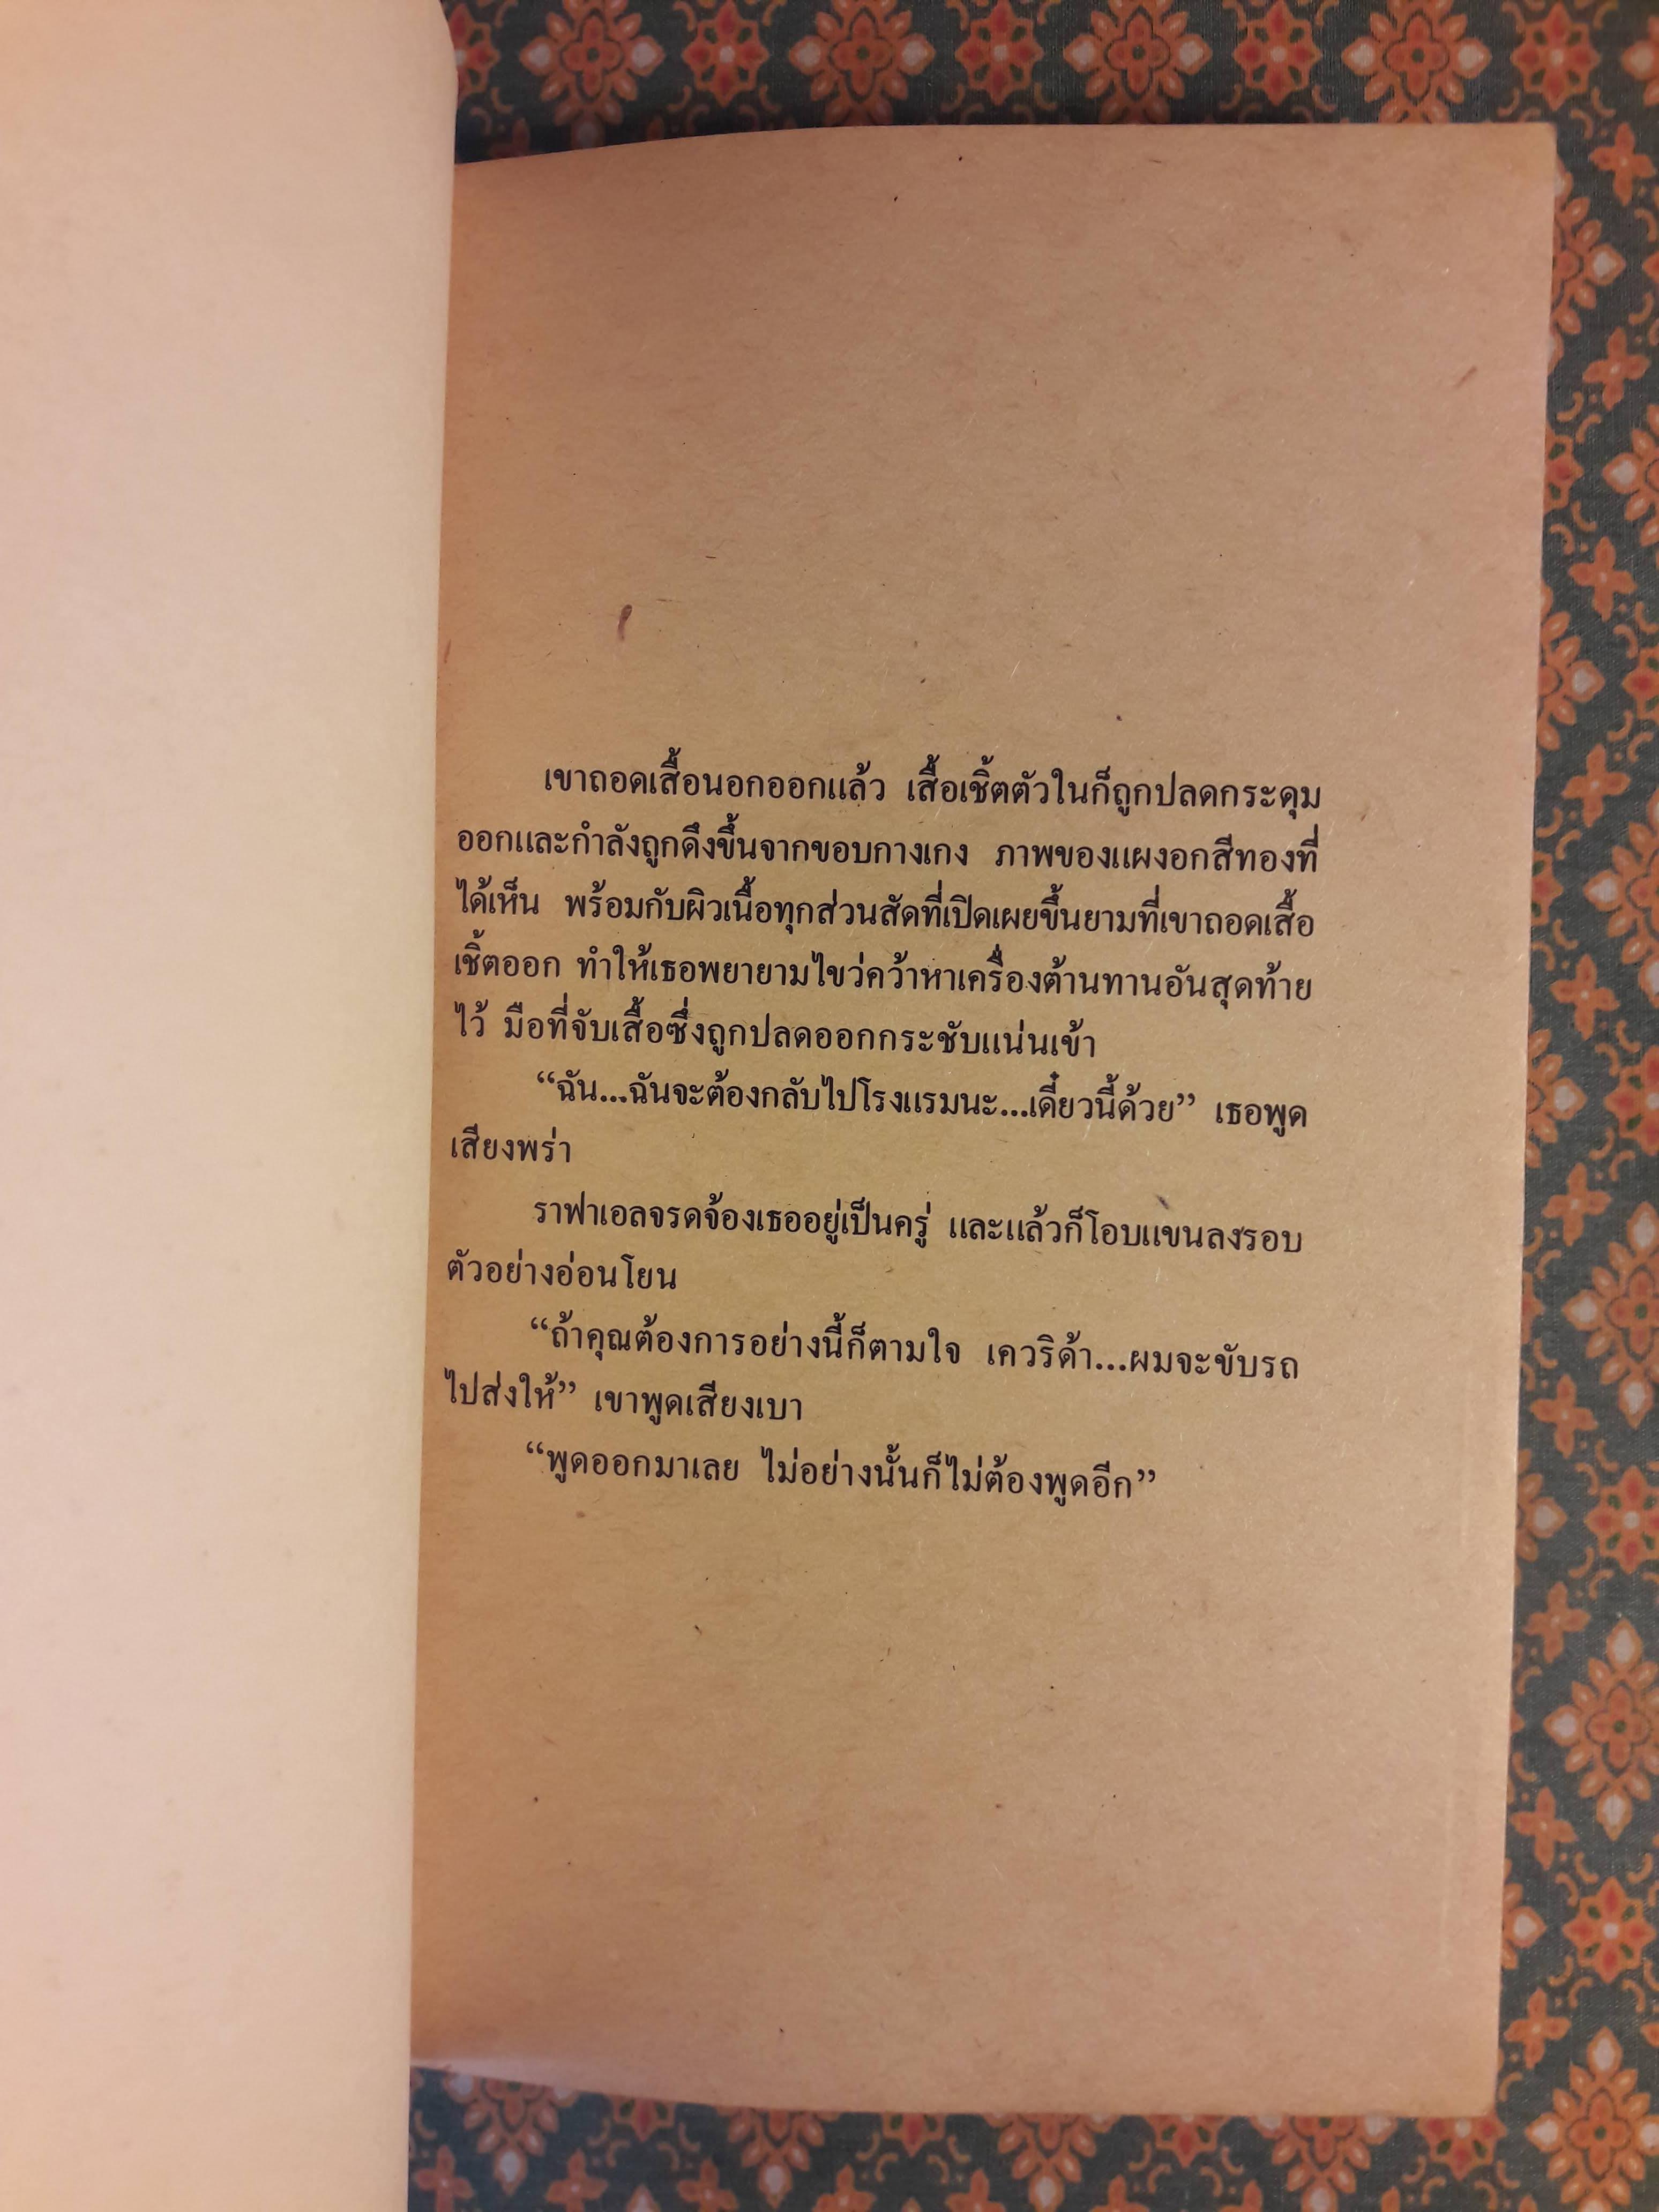 เขาถอดเสื้อนอกออกแล้ว เสื้อเชิ้ตตัวในก็ถูกปลดกระดุม
ออกและกำลังถูกดึงขึ้นจากขอบกางเกง ภาพของแผงอกสีทองที่
ได้เห็น พร้อมกับผิวเนื้อทุกส่วนสัดที่เปิดเผยขึ้นยามที่เขาถอดเสื้อ
เชิ้ตออก ทำให้เธอพยายามไขว่คว้าหาเครื่องต้านทานอันสุดท้าย
ไว้ มือที่จับเสื้อซึ่งถูกปลดออกกระชับแน่นเข้า
“ฉัน...ฉันจะต้องกลับไปโรงแรมนะ...เดี๋ยวนี้ด้วย” เธอพูด
เสียงพร่า
ราฟาเอลจรดจ้องเธออยู่เป็นครู่ และแล้วก็โอบแขนลงรอบ
ตัวอย่างอ่อนโยน
“ถ้าคุณต้องการอย่างนี้ก็ตามใจ เควริด้า...ผมจะขับรถ
ไปส่งให้” เขาพูดเสียงเบา
“พูดออกมาเลย ไม่อย่างนั้นก็ไม่ต้องพูดอีก”